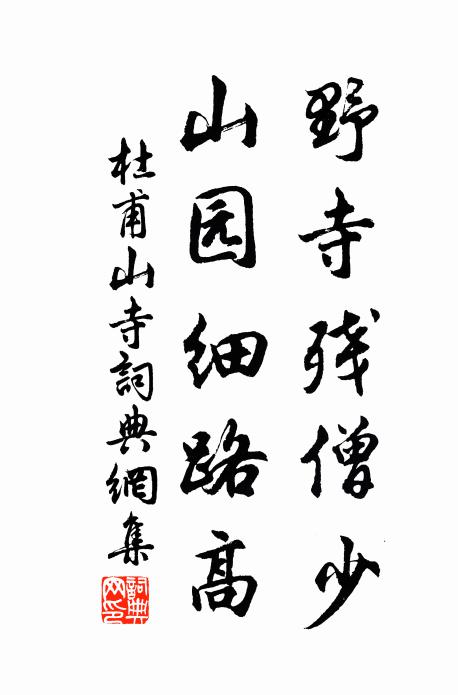 野寺残僧少
山园细路高
杜甫山寺詞典網集
詞典网印